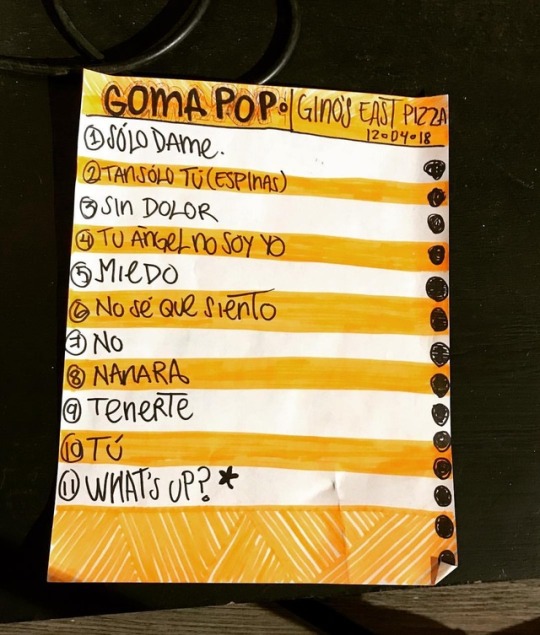 GOMA POP. | GINO'S EAST PIZZA
12•04•18
1 SÓLO DAME.
2 TAN SÓLO TÚ (ESPINAS)
3 SIN DOLOR
4 TU ÁNGEL NO SOY YO
5 MIEDO
6 NO SÉ QUE SIENTO
7 NO
8 NANARA
9 TENERTE
10 TÚ
11 WHAT'S UP? *